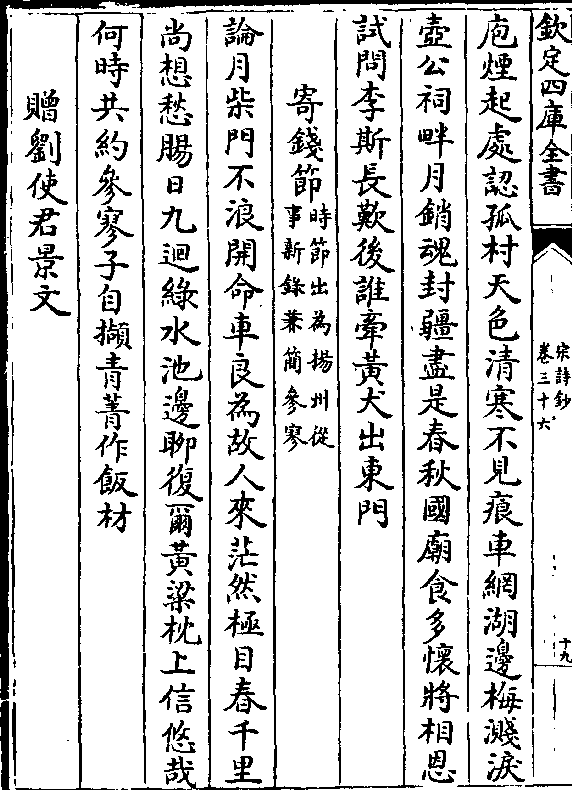 欽定四庫全書
宋詩鈔
卷三十六
十九
庖煙起處認孤村天色清寒不見痕車網湖邊梅濺淚
壺公祠畔月銷魂封疆盡是春秋國廟食多懷將相恩
試問李斯長歎後誰牽黃犬出東門
寄錢節時節出為楊州從
事新錄兼簡參寥
論月柴門不浪開命車良為故人來茫然極目春千里
尚想愁腸日九迴綠水池邊聊復爾黃粱枕上信悠哉
何時共約參寥子自擷青菁作飯材
贈劉使君景文